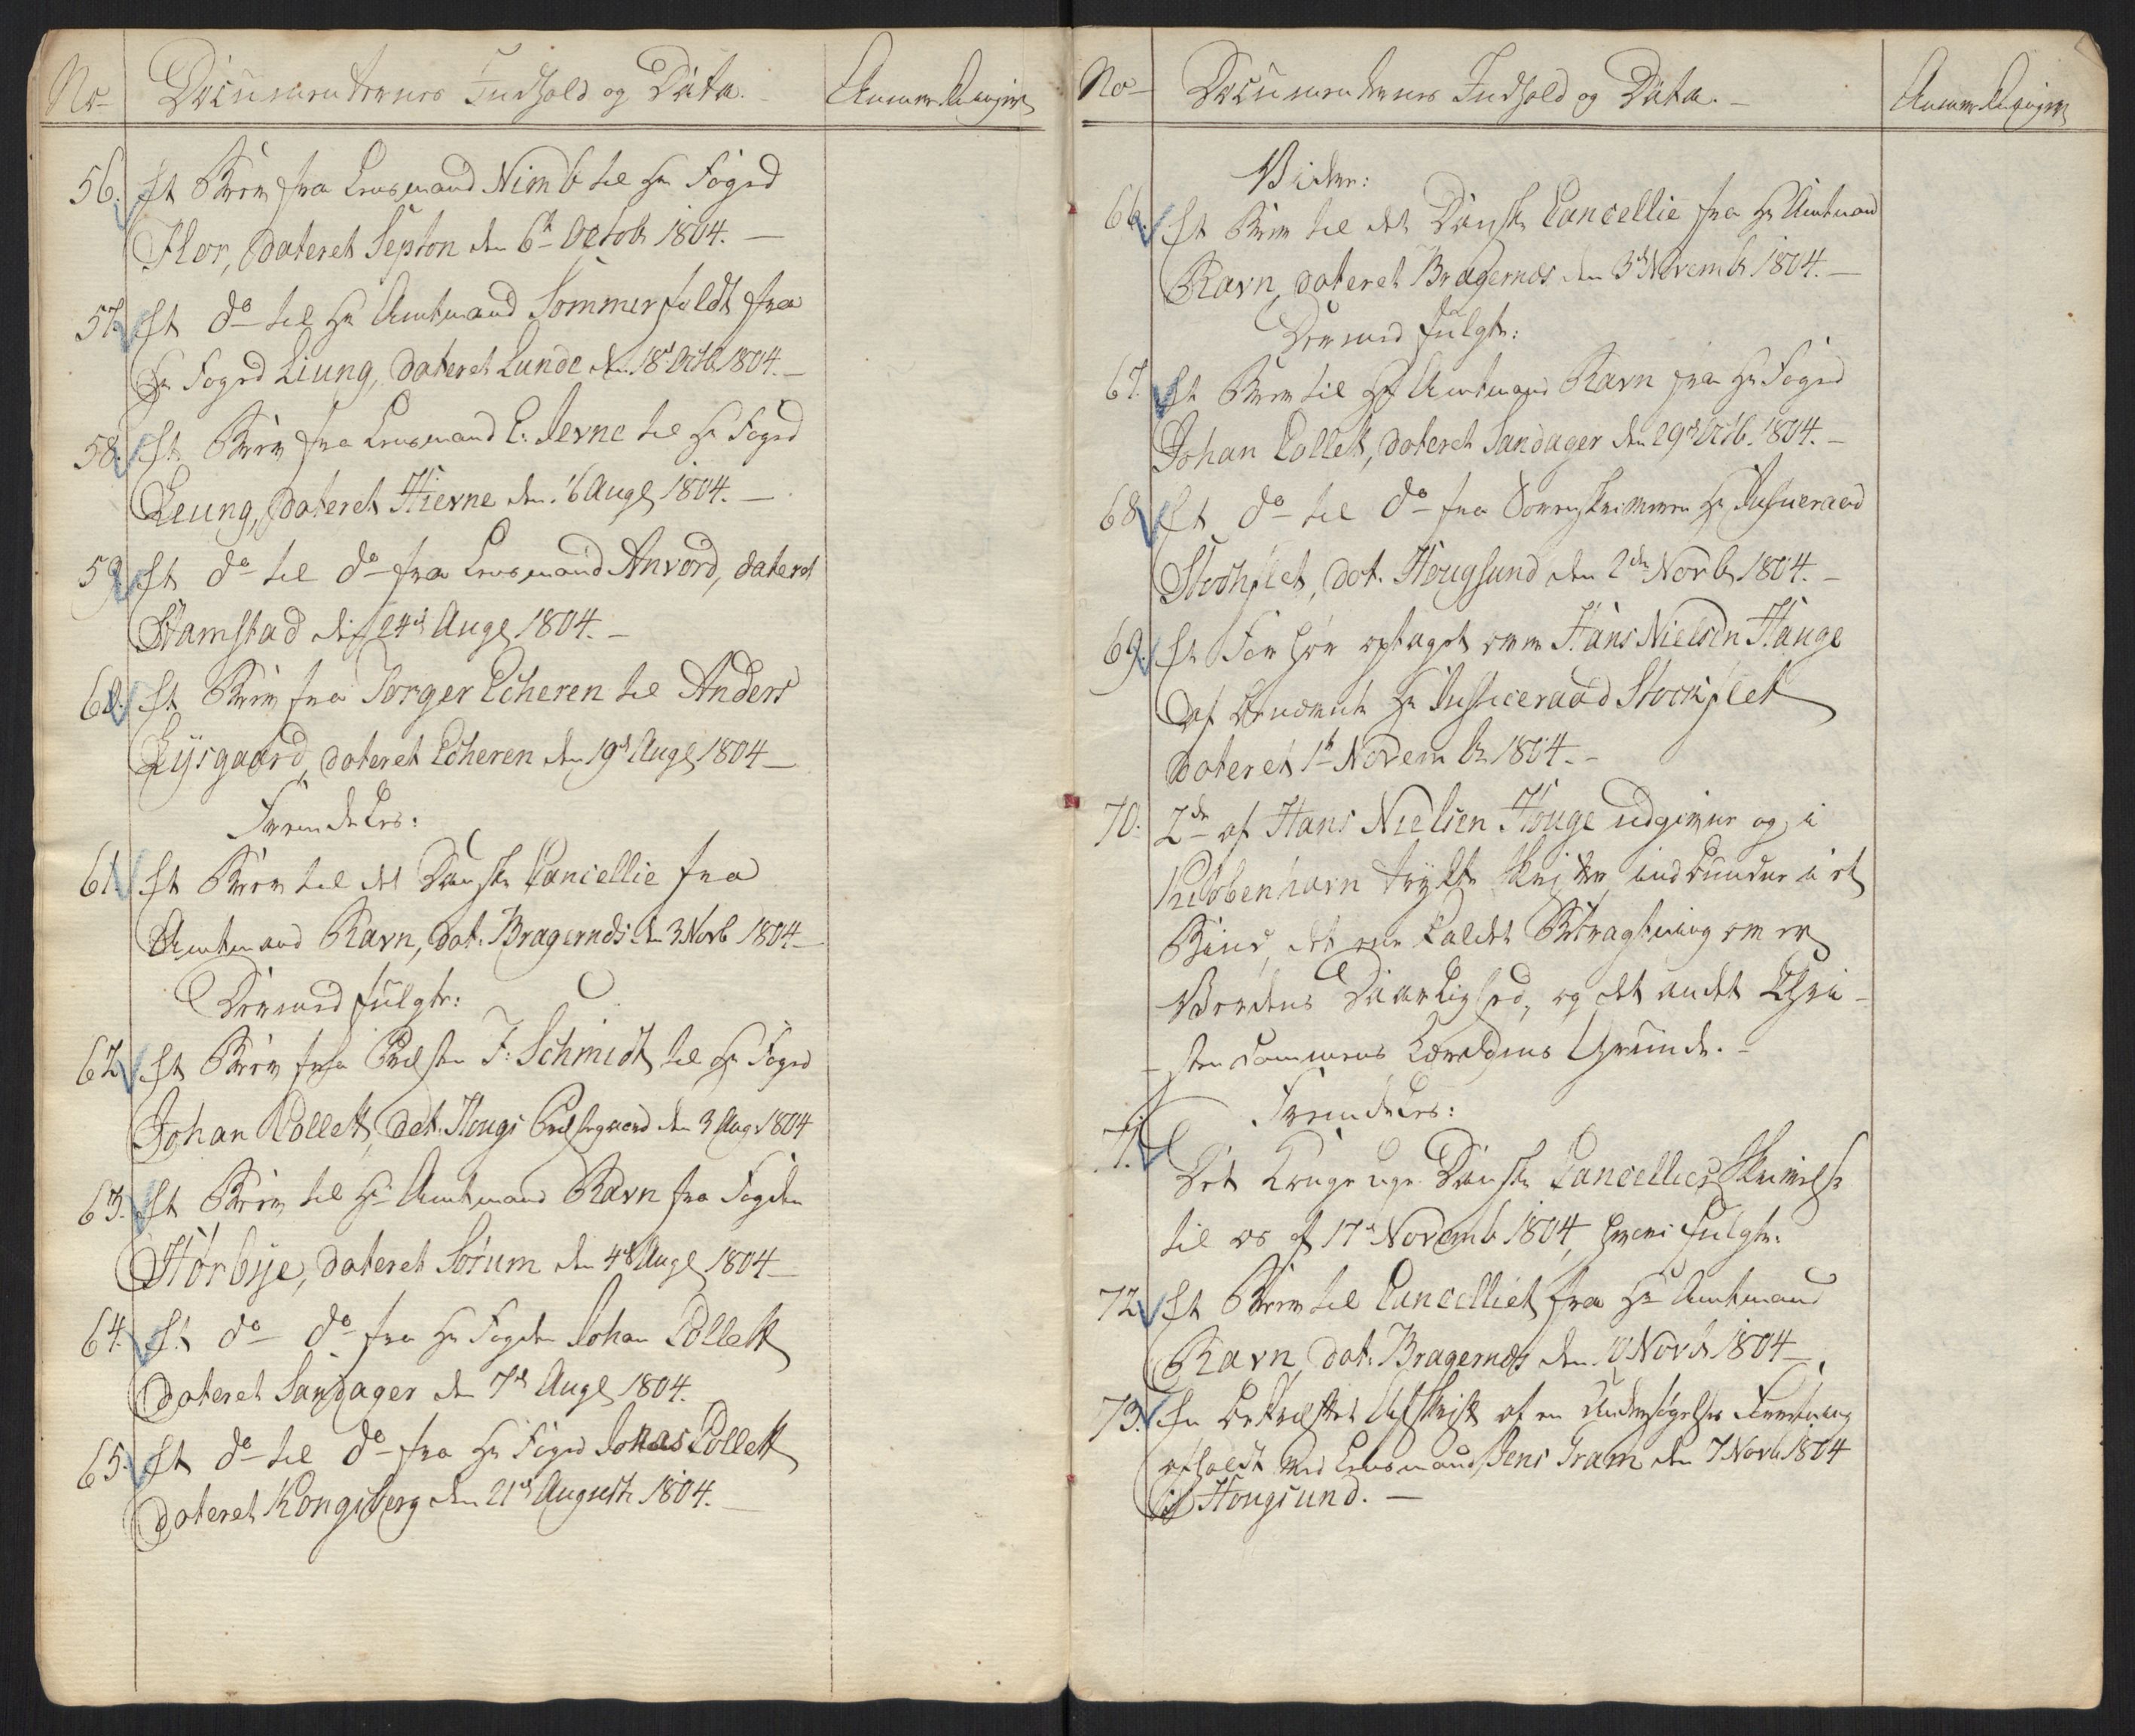 No Documenternes Indhold og Data. Anmærkninger
56. Et Brev fra Lensmand Nimb til Hr Foged
Flor, dateret Septon den 6t Octob 1804. —
57. Et do til Hr Amtmand Sommerfeldt fra
Hr Foged Liung, dateret Lunde den 18d Octb 1804. —
58. Et Brev fra Lensmand E: Jevne til Hr Foged
Leung, dateret Hievne den 16 Augs 1804. —
59. Et do til do fra Lensmand Anvord, dateret
Hamstad den 24d Augs 1804. —
60. Et Brev fra Torger Echeren til Anders
Lysgaard, dateret Echeren den 19d Augs 1804 —
Fremdeles:
61. Et Brev til det Danske Cancellie fra
Amtmand Ravn, dat: Bragernæs den 3 Novb 1804 —
Dermed fulgte:
62. Et Brev fra Præsten F: Schmidt til Hr Foged
Johan Collett, dat: Hougs Præstegaard den 3 Aug 1804
63. Et Brev til Hr Amtmand Ravn fra Fogden
Hørbye, dateret Sørum den 4d Augs 1804 —
64. Et do do fra Hr Fogden Johan Collett
dateret Sandager den 7d Augs 1804.
65. Et do til do fra Hr Foged Jonas Collett
dateret Kongsberg den 21d Augusti 1804. —
No Documenternes Indhold og Data. — Anmærkninger
Videre:
66. Et Brev til det Danske Cancellie fra Hr Amtmand
Ravn, dateret Bragernæs den 3d Novembr 1804. —
Dermed fulgte:
67. Et Brev til Hr Amtmand Ravn fra Hr Foged
Johan Collett, dateret Sandager den 29d Octb. 1804. —
68. Et do til do fra Sorenskriveren Hr Justiceraad
Stochflet, dat. Hougsund den 2den Novbr 1804. —
69. Et Forhør optaget over Hans Nielsen Hauge
af bemelte Hr Justiceraad Stockflet
dateret 1t Novembr 1804. —
70. 2de af Hans Nielsen Houge udgivne og i
Kiøbenhavn trykte Skrifter indbundne i et
Bind, det ene kaldet Betragtning over
Verdens Daarlighed, og det andet Chri-
-stendommens Lærdoms Grunde. —
Fremdeles:
71. Det Kongelige Danske Cancellies Skrivelse
til os af 17d Novemb 1804, hvori fulgte:
72. Et Brev til Cancelliet fra Hr Amtmand
Ravn, dat: Bragernæs den 10 Novbr 1804 —
73. En bekræftet Afskrift af en Undersøgelses Forretning
afholdt ved Lensmand Jens Tram den 7 Novb 1804
i Hougsund. —